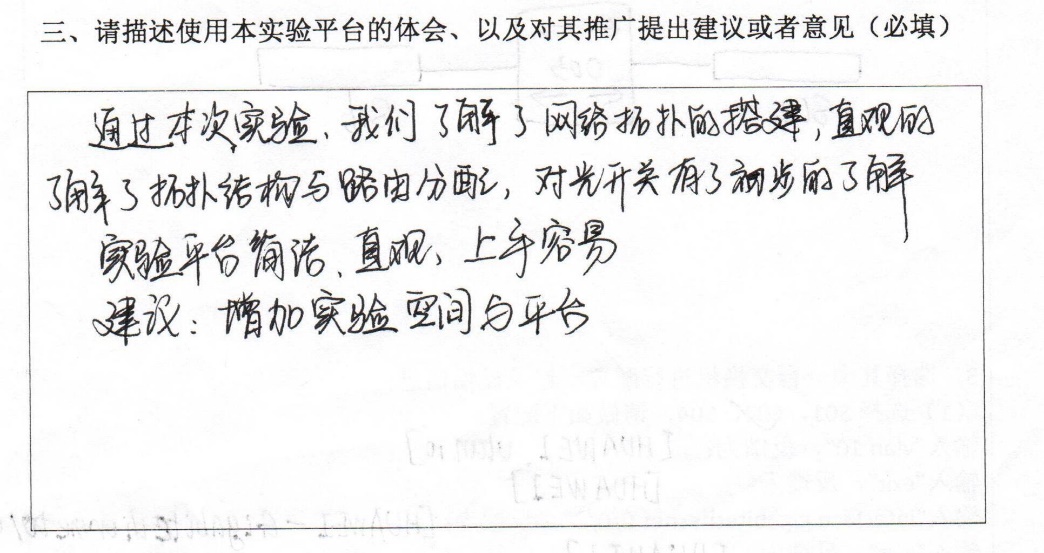 三、请描述使用本实验平台的体会、以及对其推广提出建议或者意见（必填）
通过本次实验，我们了解了网络拓扑的搭建，直观的
了解了拓扑结构与路由分配，对光开关有了初步的了解
实验平台简洁、直观、上手容易
建议：增加实验空间与平台